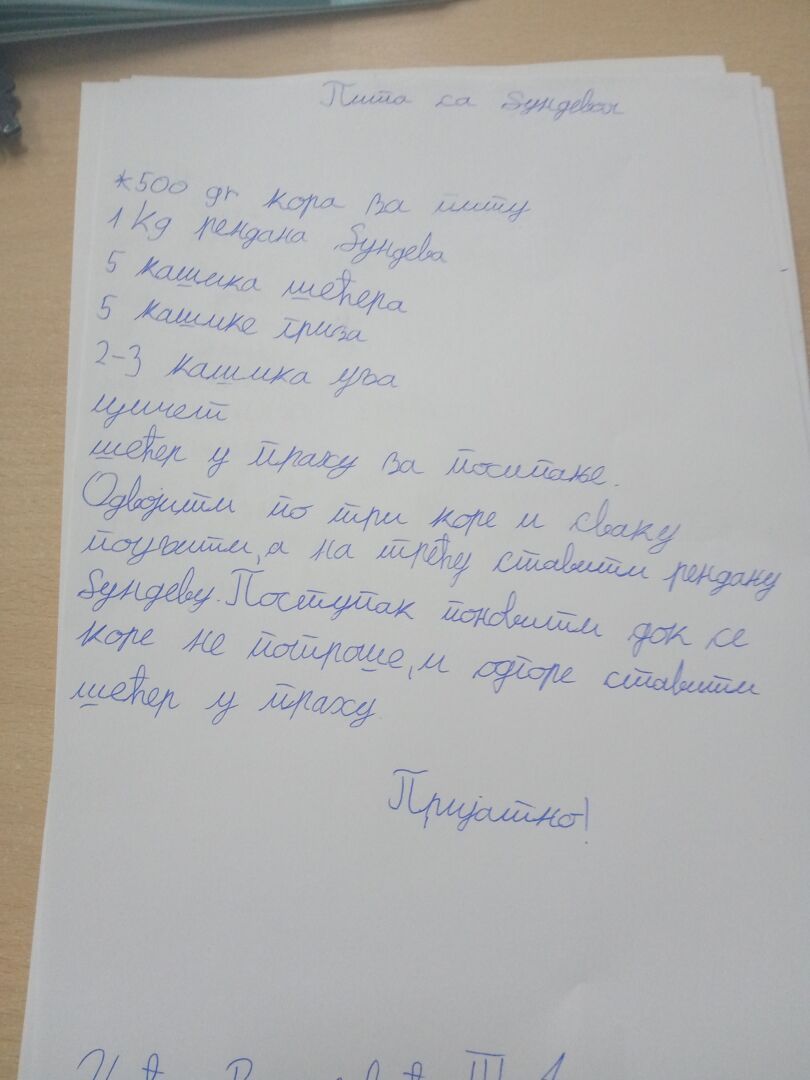 Пита са бундевом
*500 gr кора за питу
1 kg рендана бундева
5 кашика шећера
5 кашике гриза
2-3 кашика уља
цимет
шећер у праху за посипање.
Одвојити по три коре и сваку
поуљити, а на трећу ставити рендану
бундеву. Поступак поновити док се
коре не потроше, и одгоре ставити
шећер у праху.
Пријатно!